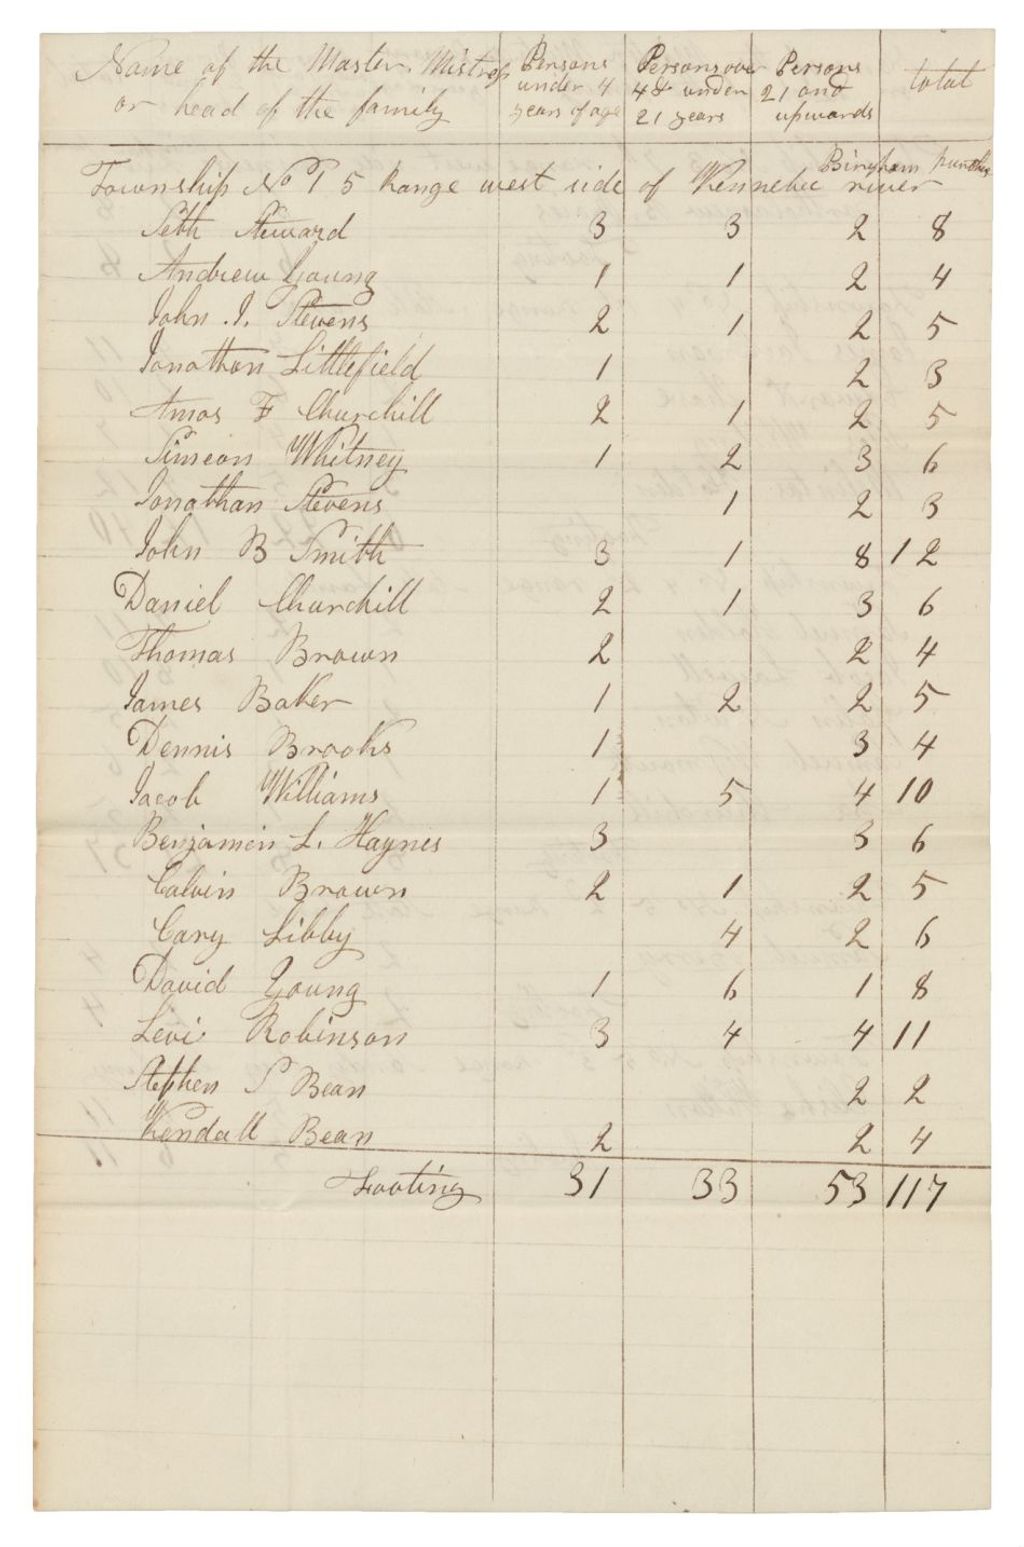 Name of the Master, Mistress or head of the family | Persons under 4 years of age | Persons over 4 & under 21 years | Persons 21 and upwards | total
Bingham purchase
Township No 1 5 Range west side of Kennebec river
Seth Steward 3 3 2 8
Andrew Young 1 1 2 4
John J. Stevens 2 1 2 5
Jonathan Littlefield 1 2 3
Amos F Churchill 2 1 2 5
Simeon Whitney 1 2 3 6
Jonathan Stevens 1 2 3
John B Smith 3 1 8 12
Daniel Churchill 2 1 3 6
Thomas Brown 2 2 4
James Baker 1 2 2 5
Dennis Brooks 1 3 4
Jacob Williams 1 5 4 10
Benjamin L. Haynes 3 3 6
Calvin Brown 2 1 2 5
Cary Libby 4 2 6
David Young 1 6 1 8
Levi Robinson 3 4 4 11
Stephen S Bean 2 2
Kendall Bean 2 2 4
Footing 31 33 53 117